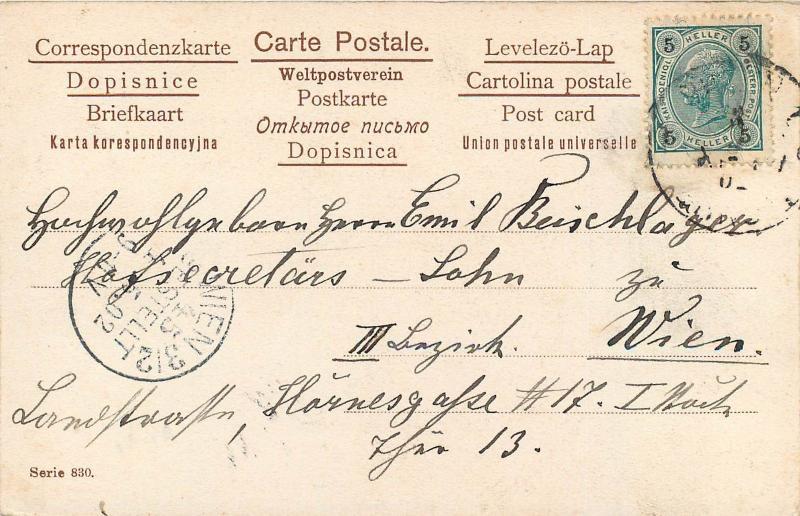 Correspondenzkarte
Dopisnice
Briefkaart
Karta korespondencyjna
Carte Postale.
Weltpostverein
Postkarte
Открытое письмо
Dopisnica
Levelezö-Lap
Cartolina postale
Post card
Union postale universelle
5 HELLER 5
KAIS. KOENIGL. OESTERR. POST
5 HELLER 5
Hochwohlgeborn Herrn Emil Beischlager
Hofsecretärs – Sohn zu
III Bezirk. Wien.
Landstrasse, Hörnesgaße #17. I Stock
Thür 13.
WIEN 3/2
BESTELLT
Serie 830.